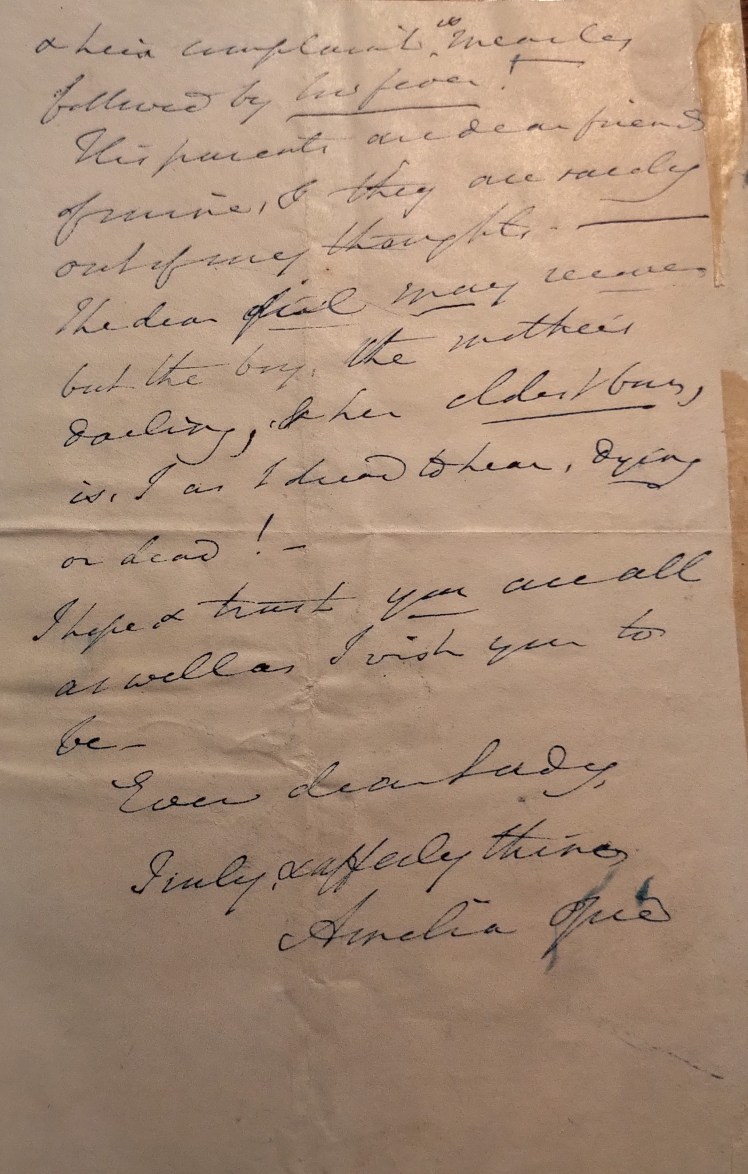 & their complaint is Measles
followed by low fever!
His parents are dear friends
of mine, & they are rarely
out of my thoughts. —
The dear girl may recover
but the boy, the mother's
darling, & her eldest boy,
is, I as I dread to hear, dying
or dead! —
I hope & trust you are all
as well as I wish you to
be —
Ever dear Lady,
Truly & affecly thine
Amelia Opie